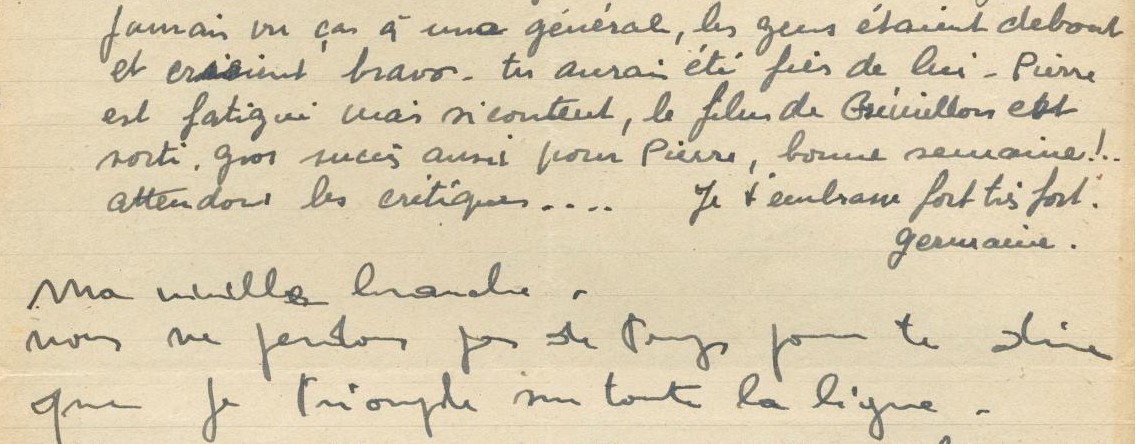 jamais vu ças à une général, les gens étaient debout
et criaient bravo - tu aurai été fier de lui - Pierre
est fatigué mais si content, le film de Grémillon est
sorti, gros succès aussi pour Pierre, bonne semaine!..
attendons les critiques.... Je t'embrasse fort très fort.
germaine.
Ma vieille branche -
nous ne perdons pas de temps pour te dire
que je triomphe sur toute la ligne -